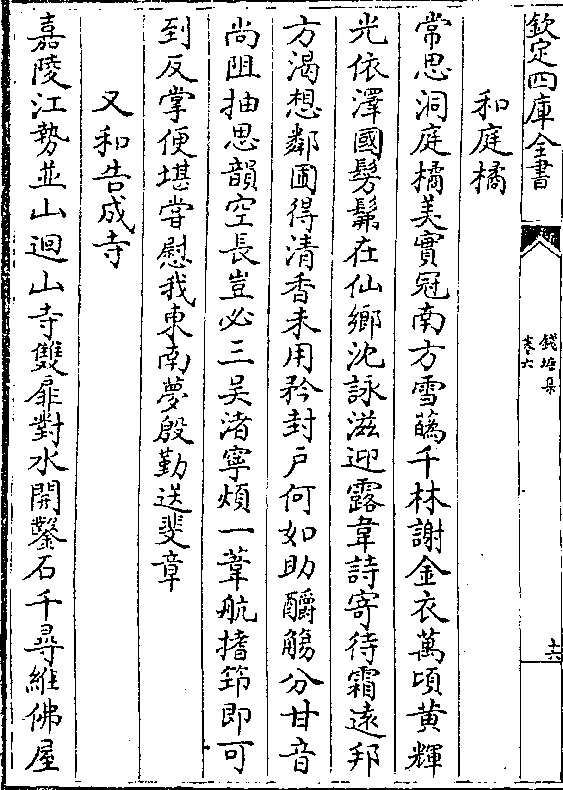 欽定四庫全書
錢塘集
卷六
十六
和庭橘
常思洞庭橘美實冠南方雪蘤千林謝金衣萬頃黄輝
光依澤國髣髴在仙鄉沈詠滋迎露韋詩寄待霜遠邦
方渴想鄰圃得清香未用矜封戶何如助釂觴分甘音
尚阻抽思韻空長豈必三吴渚寧煩一葦航搘筇即可
到反掌便堪嘗慰我東南夢殷勤送斐章
又和告成寺
嘉陵江勢並山迴山寺雙扉對水開鑿石千尋維佛屋